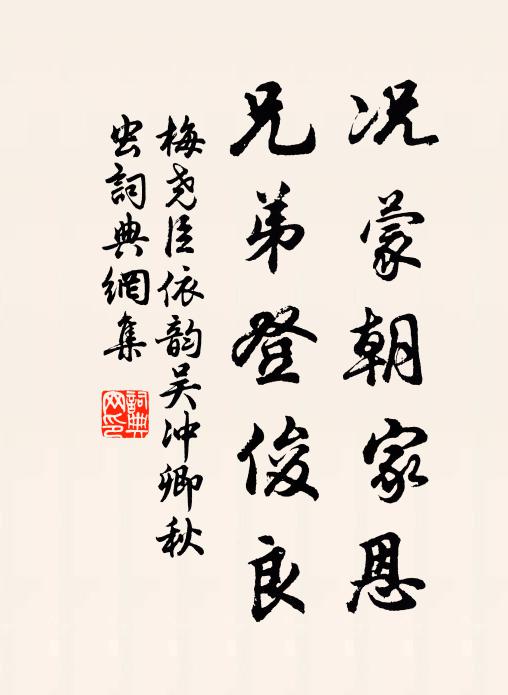 况蒙朝家恩
兄弟登俊良
梅尧臣依韵吴冲卿秋
虫詞典網集
詞典网印